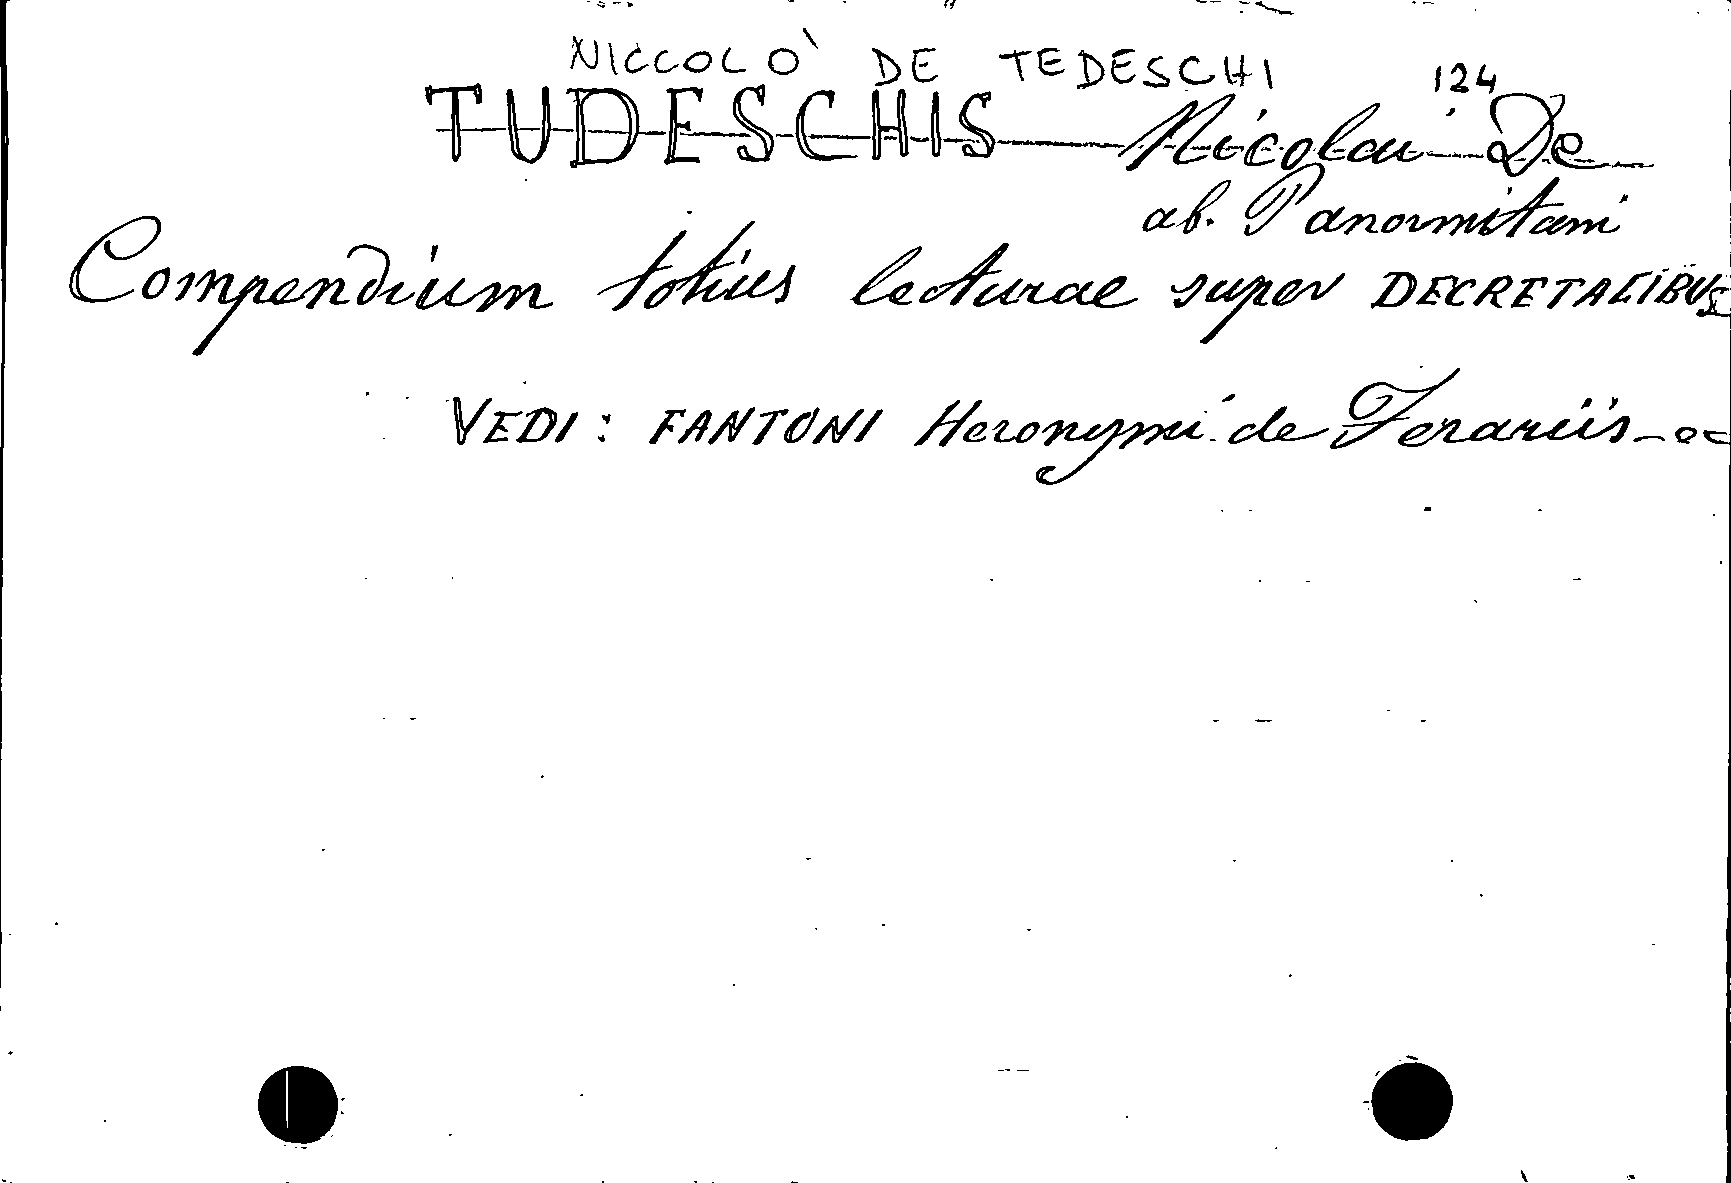 NICCOLO' DE TEDESCHI 124
TUDESCHIS Nicolai De
ab. Panormitani
Compendium totius lecturae super DECRETALIBUS
VEDI: FANTONI Heronymi de Ferariis